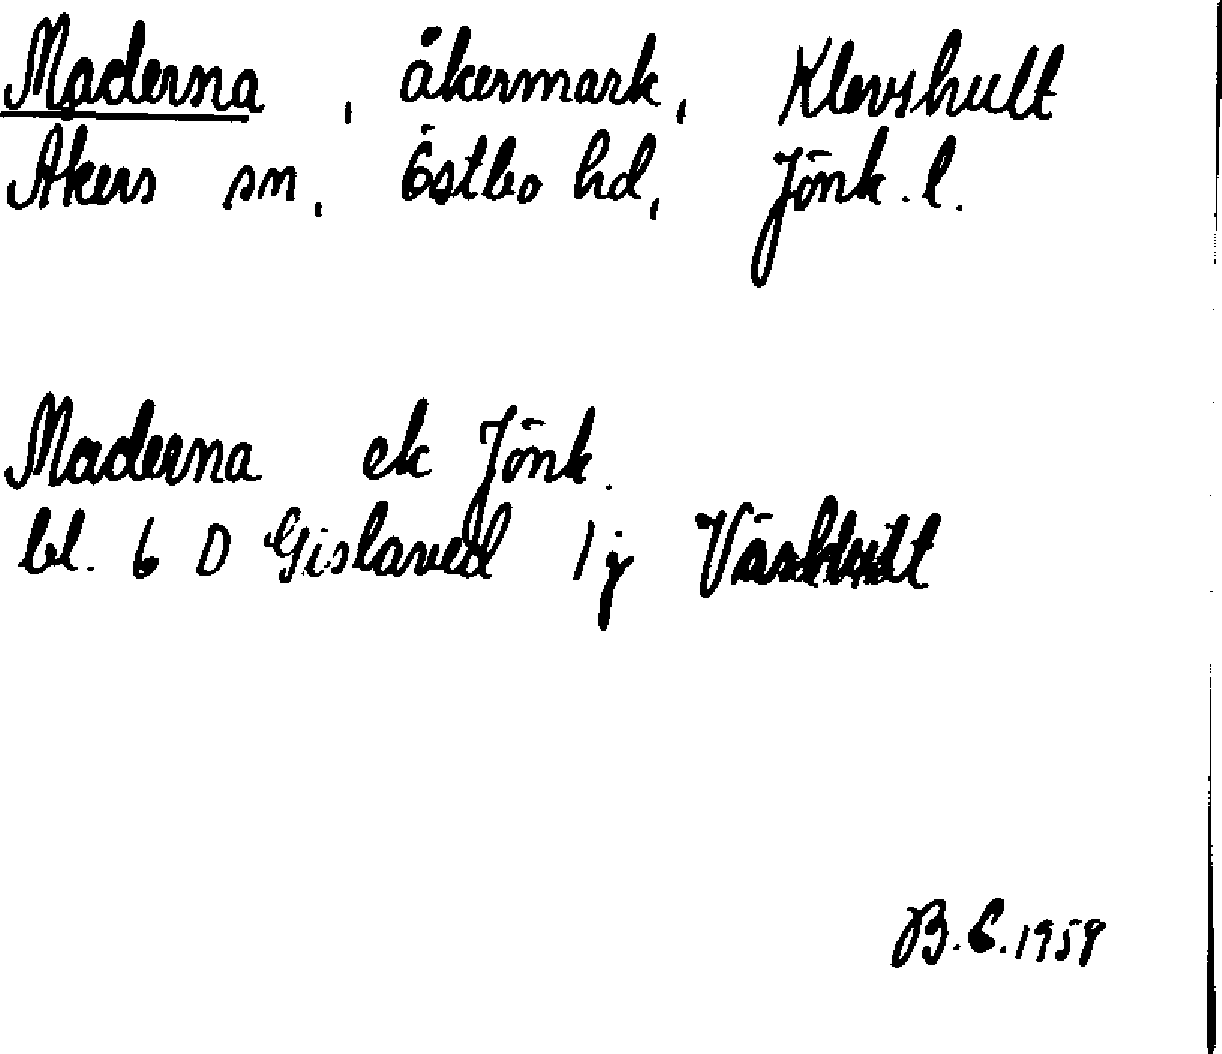 Maderna, åkermark, Klevshult
Åkers sn, Östbo hd, Jönk. l.
Maderna ek Jönk.
bl. 6 D Gislaved 1 j
B.E. 1959